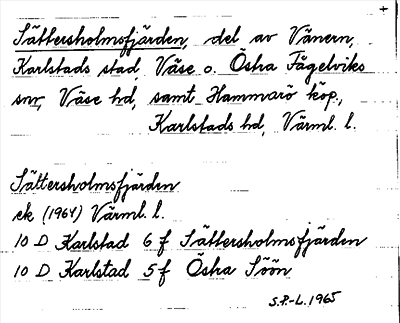 +
Sättersholmsfjärden, del av Vänern,
Karlstads stad, Väse o. Östra Fågelviks
snr, Väse hd, samt Hammarö köp.,
Karlstads hd, Värml. l.
Sättersholmsfjärden
ek (1964) Värml. l.
10 D Karlstad 6 f Sättersholmsfjärden
10 D Karlstad 5 f Östra Söön
S.P.-L. 1965